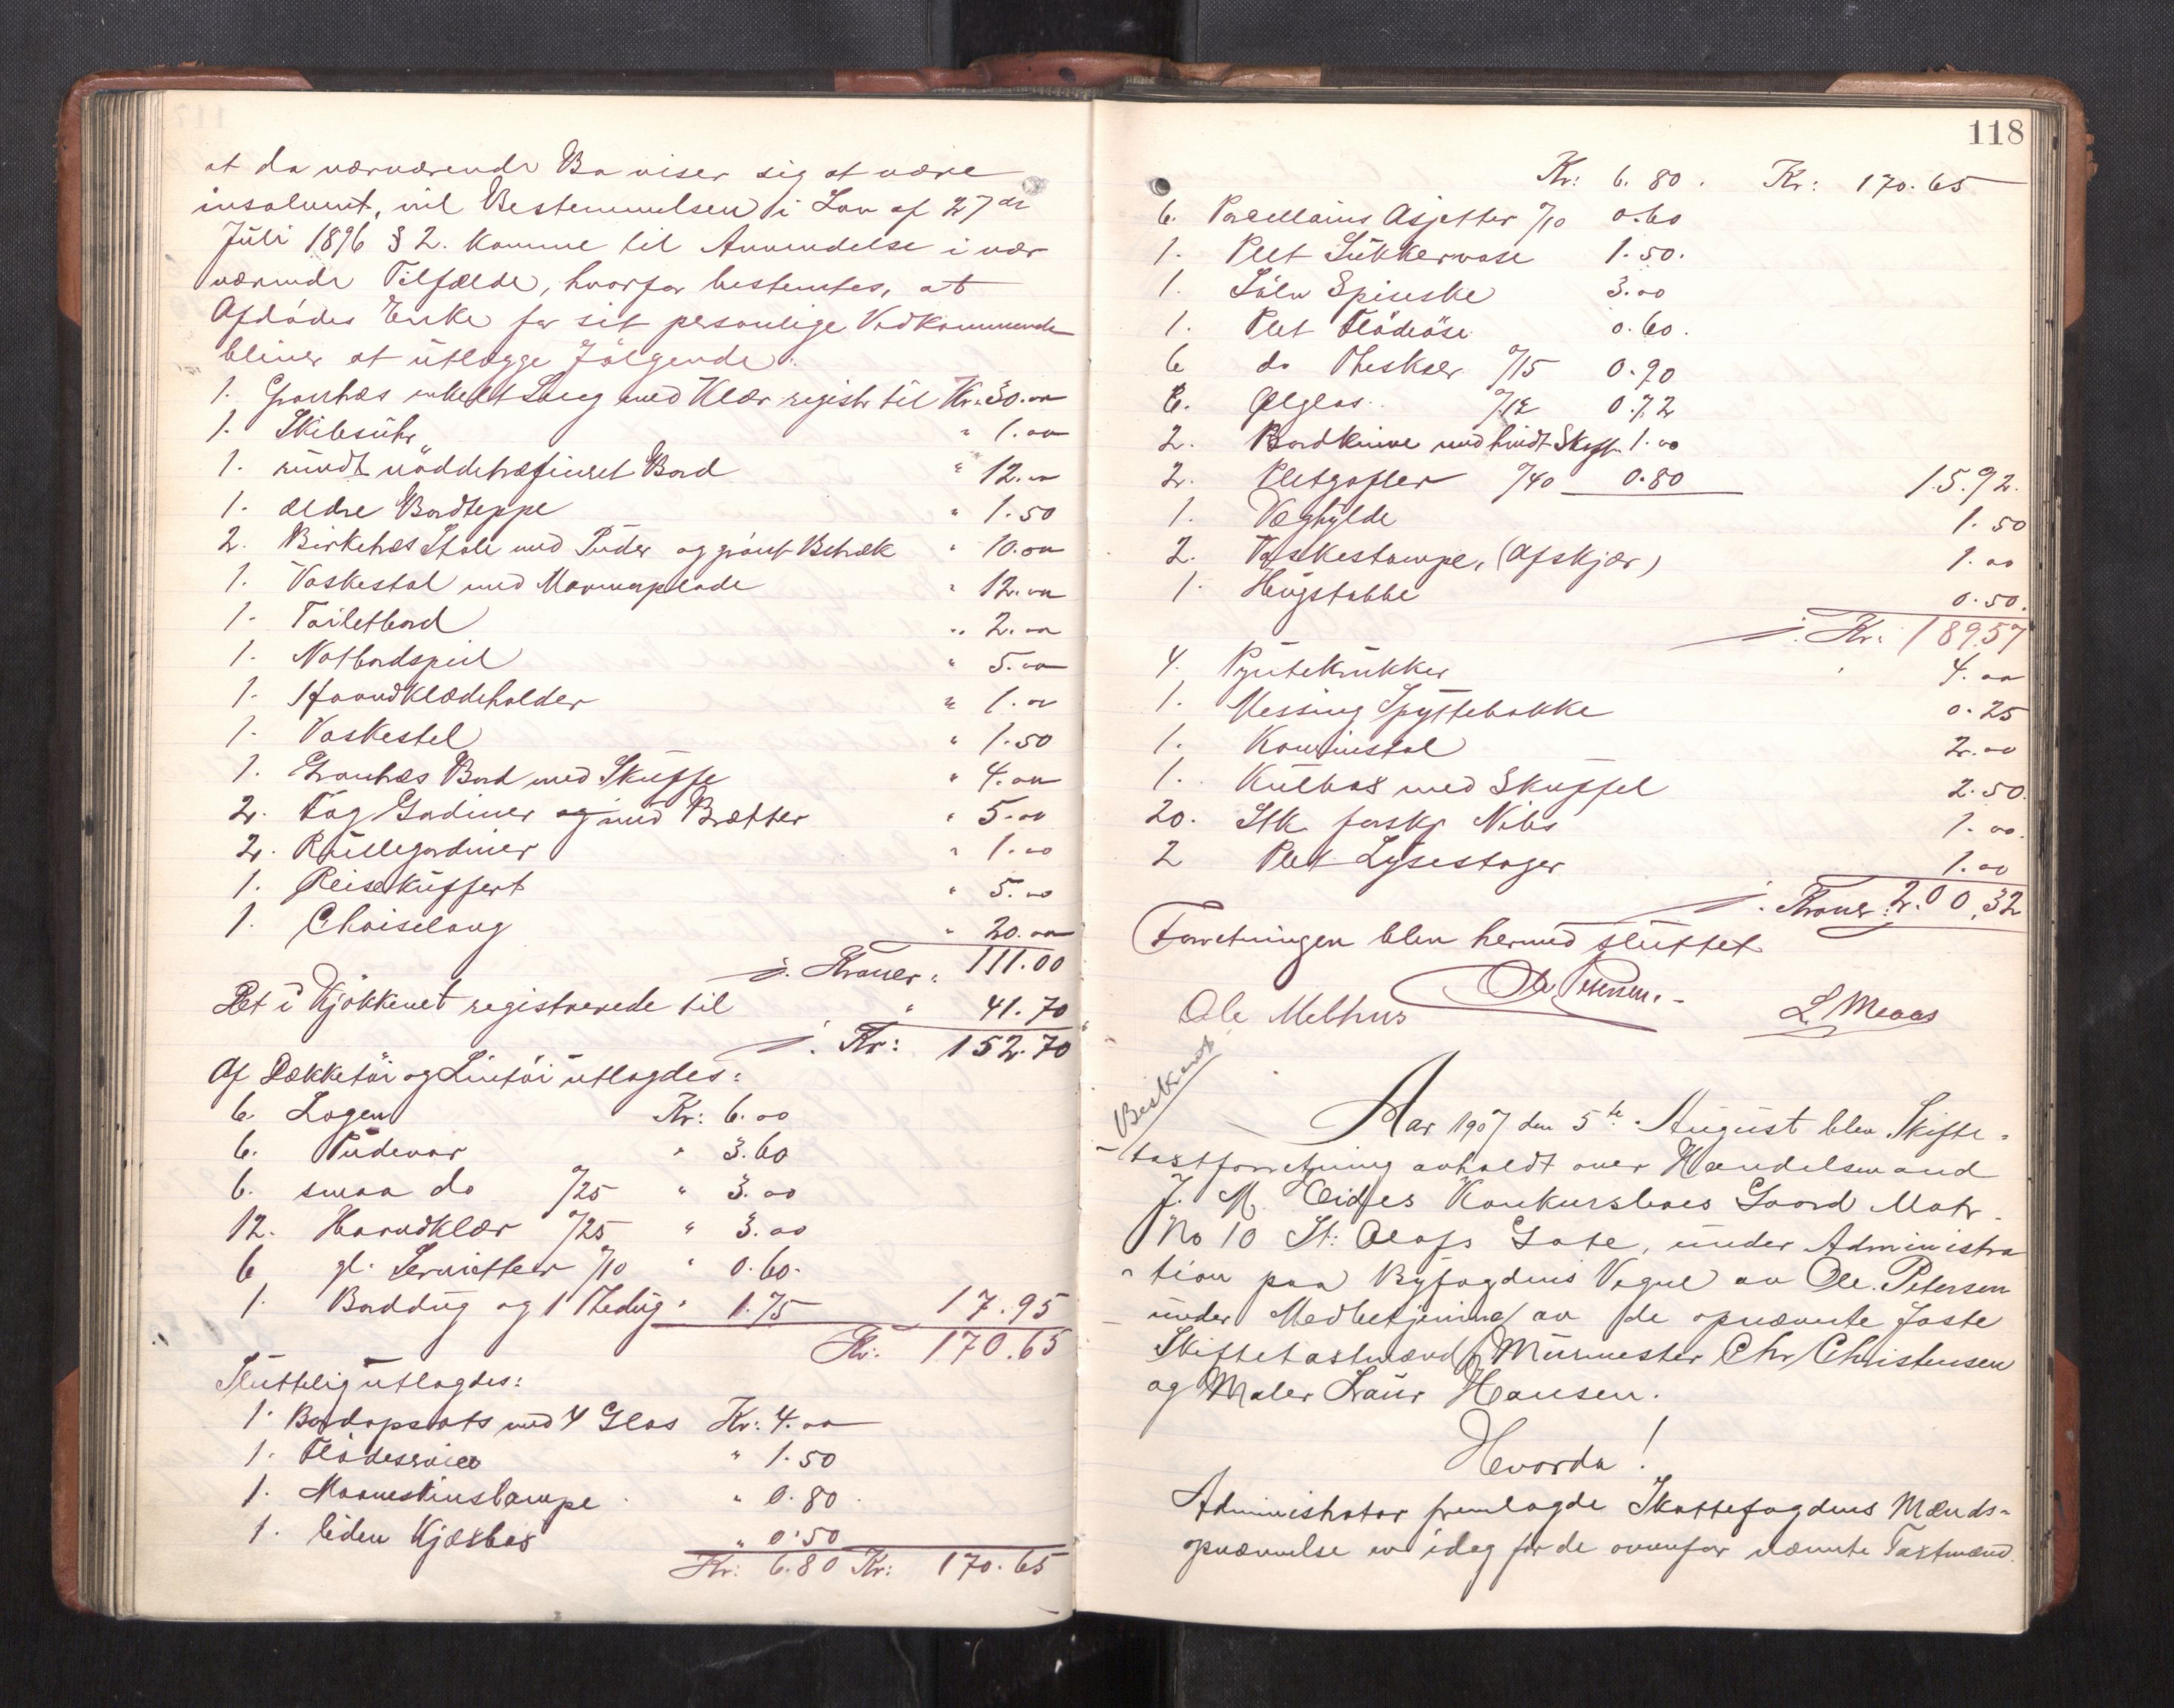 at da nærværende Bo viser sig at være
insolvent, vil Bestemmelsen i Lov af 27de
Juli 1896 § 2. komme til Anvendelse i nær
værende Tilfælde, hvorfor bestemtes, at
Afdødes Enke for sit personlige Vedkommende
bliver at utlægge følgende:
1. Grantræs enkelt Seng med Klær registr til Kr. 30.00
1. Skibsuhr " 1.00
1. rundt nøddetræfineret Bord " 12.00
1. ældre Bordteppe " 1.50
2. Birketræs Stole med Puder og grønt Betræk " 10.00
1. Vaskestol med Marmorplade " 12.00
1. Toiletbord " 2.00
1. Natbordspeil " 5.00
1. Haandklædeholder " 1.00
1. Vaskestel " 1.50
1. Grantræs Bord med Skuffe " 4.00
2. Fag Gardiner og med Brætter " 5.00
2. Rullegardiner " 1.00
1. Reisekuffert " 5.00
1. Chaiselong " 20.00
Kroner: 111.00
Det i Kjøkkenet registrerede til " 41.70
Kr: 152.70
Af Dækketøi og Lintøi utlagdes:
6. Lagen Kr: 6.00
6. Pudevar " 3.60
6. smaa do %25 " 3.00
12. Haandklær %25 " 3.00
6 gl. Servietter %10 " 0.60.
1. Borddug og 1 Thedug " 1.75 17.95
Kr. 170.65
Sluttelig utlagdes:
1. Bordopsats med 4 Glas Kr: 4.00
1. Flødeservice " 1.50
1. Maaneskinslampe " 0.80
1. liden Kjæsbox " 0.50
Kr: 6.80 Kr: 170.65
118
Kr: 6.80. Kr: 170.65
6. Porcellains Asjetter %10 0.60
1. Plet Sukkervase 1.50.
1. Sølv Spiseske 3.00
1. Plet Flødeøse 0.60.
6 do Theskeer %15 0.90
6. Ølglas %12 0.72
2. Bordknive med hvidt Skaft 1.00
2. Pletgafler %40 0.80 15.92.
1. Væghylde 1.50
2. Vaskestampe, (Afskjær) 1.00
1. Hugstabbe 0.50.
Kr: 189.57
4. Syltekrukker 4.00
1. Messing Spyttebakke 0.25
1. Kaminstol 2.00
1. Kulbox med Skuffel 2.50.
20. Stk forskj Nibs 1.00.
2 Plet Lysestager 1.00
Kroner 200,32
Forretningen blev hermed sluttet
Ole Petersen.
Ole Melhus L. Meaas
Beskrevet
Aar 1907 den 5te August blev Skifte-
taxtforretning avholdt over Handelsmand
J. M. Eidjes Konkursboes Gaard Matr.
No 10 St: Olafs Gate, under Administra
tion paa Byfogdens Vegne av Ole Petersen
under Medbetjening av de opnævnte faste
Skiftetaxtmænd Murmester Chr Christensen
og Maler Laur Hansen.
Hvorda!
Administrator fremlagde Skattefogdens Mænds-
opnævnelse av idag for de ovenfor nævnte Taxtmænd.